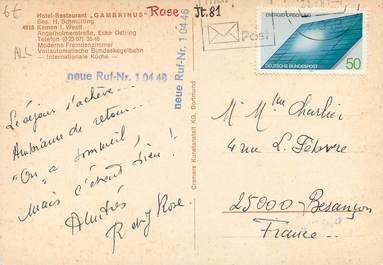 6€
ALL
Hotel-Restaurant „GAMBRINUS“
Bes. H. Schmülling
4618 Kamen i. Westf.
Angelholmerstraße, Ecke Ostring
Telefon (0 23 07) 35 46
Moderne Fremdenzimmer
Vollautomatische Bundeskegelbahn
— Internationale Küche —
neue Ruf-Nr. 1 04 46
neue Ruf-Nr. 1 04 46
Rose
Jt. 81
Post
ENERGIEFORSCHUNG
DEUTSCHE BUNDESPOST
50
Le séjour s'achève...
Ambiance de retour...
"On" a sommeil!
Mais c'était bien!
Amitiés
R et J Rose.
Cramers Kunstanstalt KG, Dortmund
M. Mme Charlier
4 rue L. Febvre
25000 - Besançon
France.